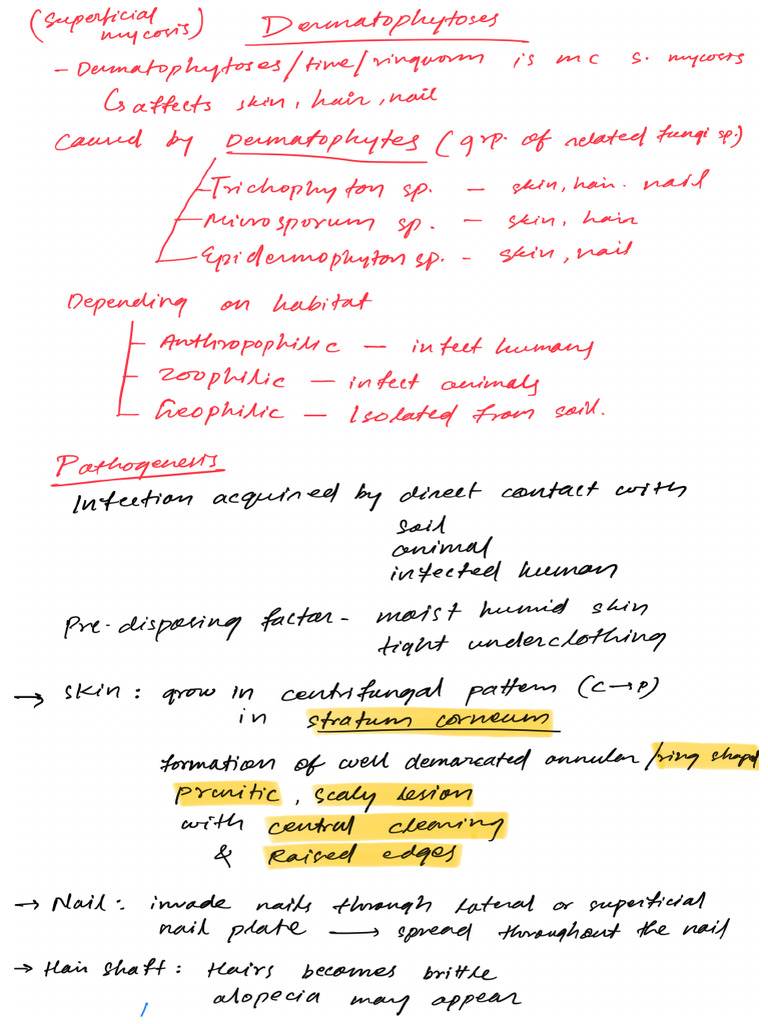 (Superficial mycosis) Dermatophytoses
- Dermatophytoses/tine/ringworm is mc s. mycosis
↳ affects skin, hair, nail
Caused by Dermatophytes (grp. of related fungi sp.)
Trichophyton sp. - skin, hair. nail
Microsporum sp. - skin, hair
Epidermophyton sp. - skin, nail
Depending on habitat
Anthropophilic - infect humans
Zoophilic - infect animals
Geophilic - Isolated from soil.
Pathogenesis
Infection acquired by direct contact with
soil
animal
infected human
Pre-disposing factor - moist humid skin
tight underclothing
→ Skin: grow in centrifungal pattern (C→P)
in stratum corneum
formation of well demarcated annular/ring shaped
pruritic, scaly lesion
with central clearing
& Raised edges
→ Nail: invade nails through lateral or superficial
nail plate → spread throughout the nail
→ Hair shaft: Hairs becomes brittle
alopecia may appear